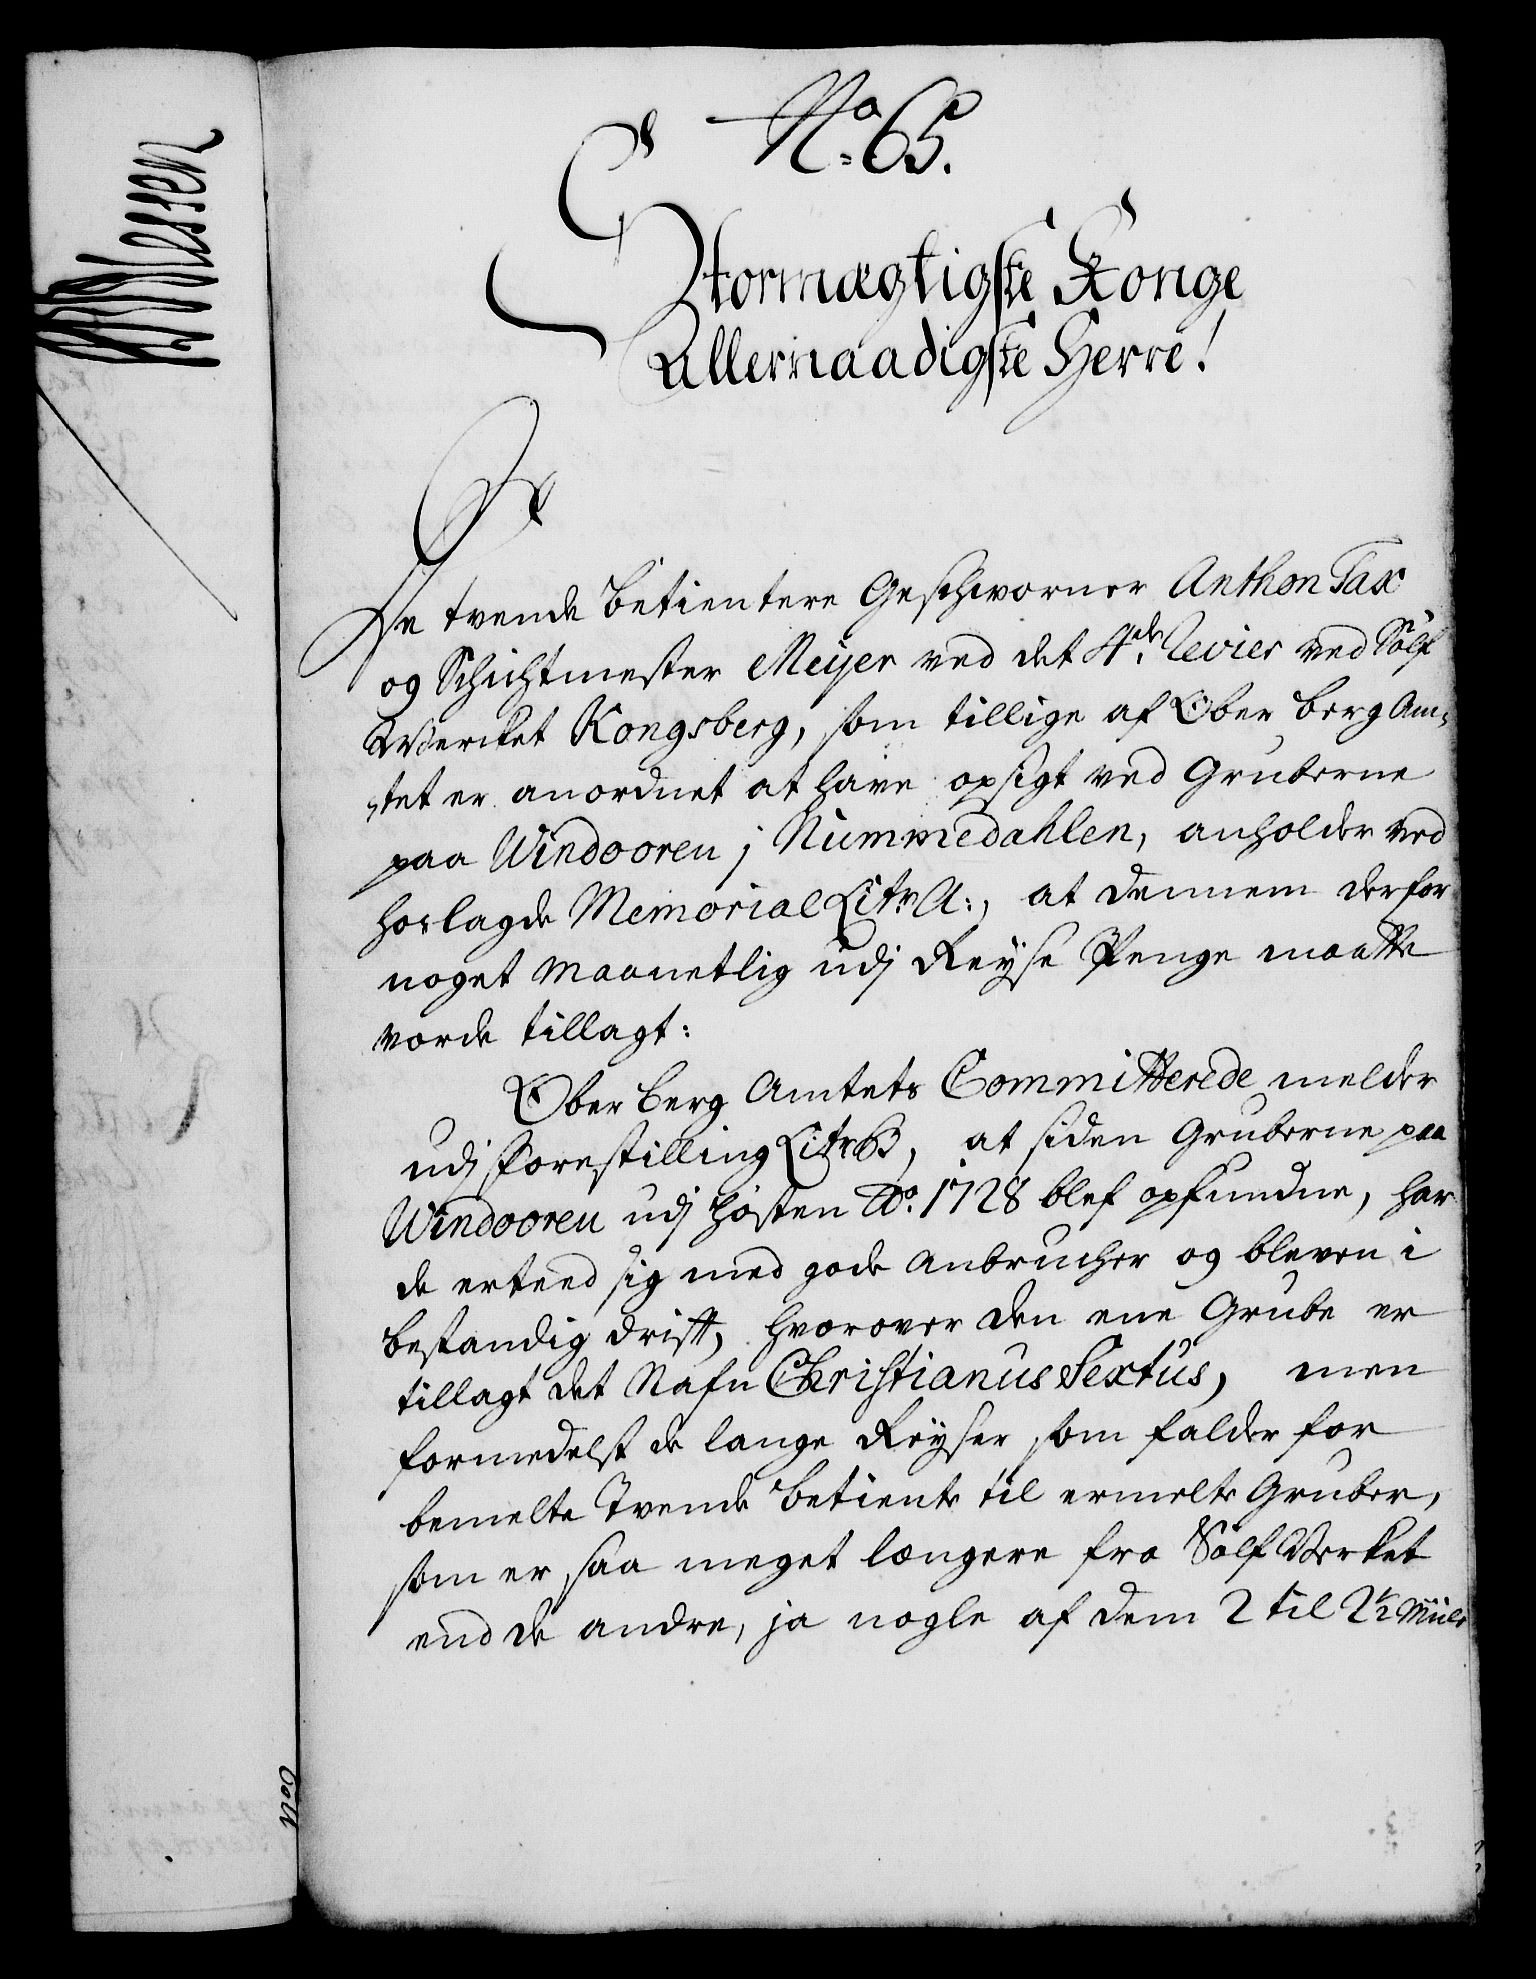 No: 65.
Stormægtigste Konge
Allernaadigste Herre!
De tvende betientere Geschworner Anthon Tax
og Schichtmester Meyer ved det 4de Revier ved Sölf
Wercket Kongsberg, som tillige af Ober Berg Am-
tet er anordnet at have opsigt ved Gruberne
paa Windooren j Nummedahlen, anholder ved
hoslagde Memorial Litr A:, at dennem derfor
noget Maanetlig udj Reyse Penge maatte
vorde tillagt:
Ober Berg Amtets Committerede melder
udj Forestilling Litr B, at siden Gruberne paa
Windooren udj Høsten Ao. 1728 blef opfundne, har
de erteed sig med gode Anbrucher og bleven i
bestandig drift, hvorover den ene Grube er
tillagt det Nafn Christianus Sextus, men
formedelst de lange Reyser som falder for
bemelte Tvende Betiente til ermelte Gruber,
som er saa meget længere fra Sölf Werket
end de andre, ja nogle af dem 2 til 2½ Miile